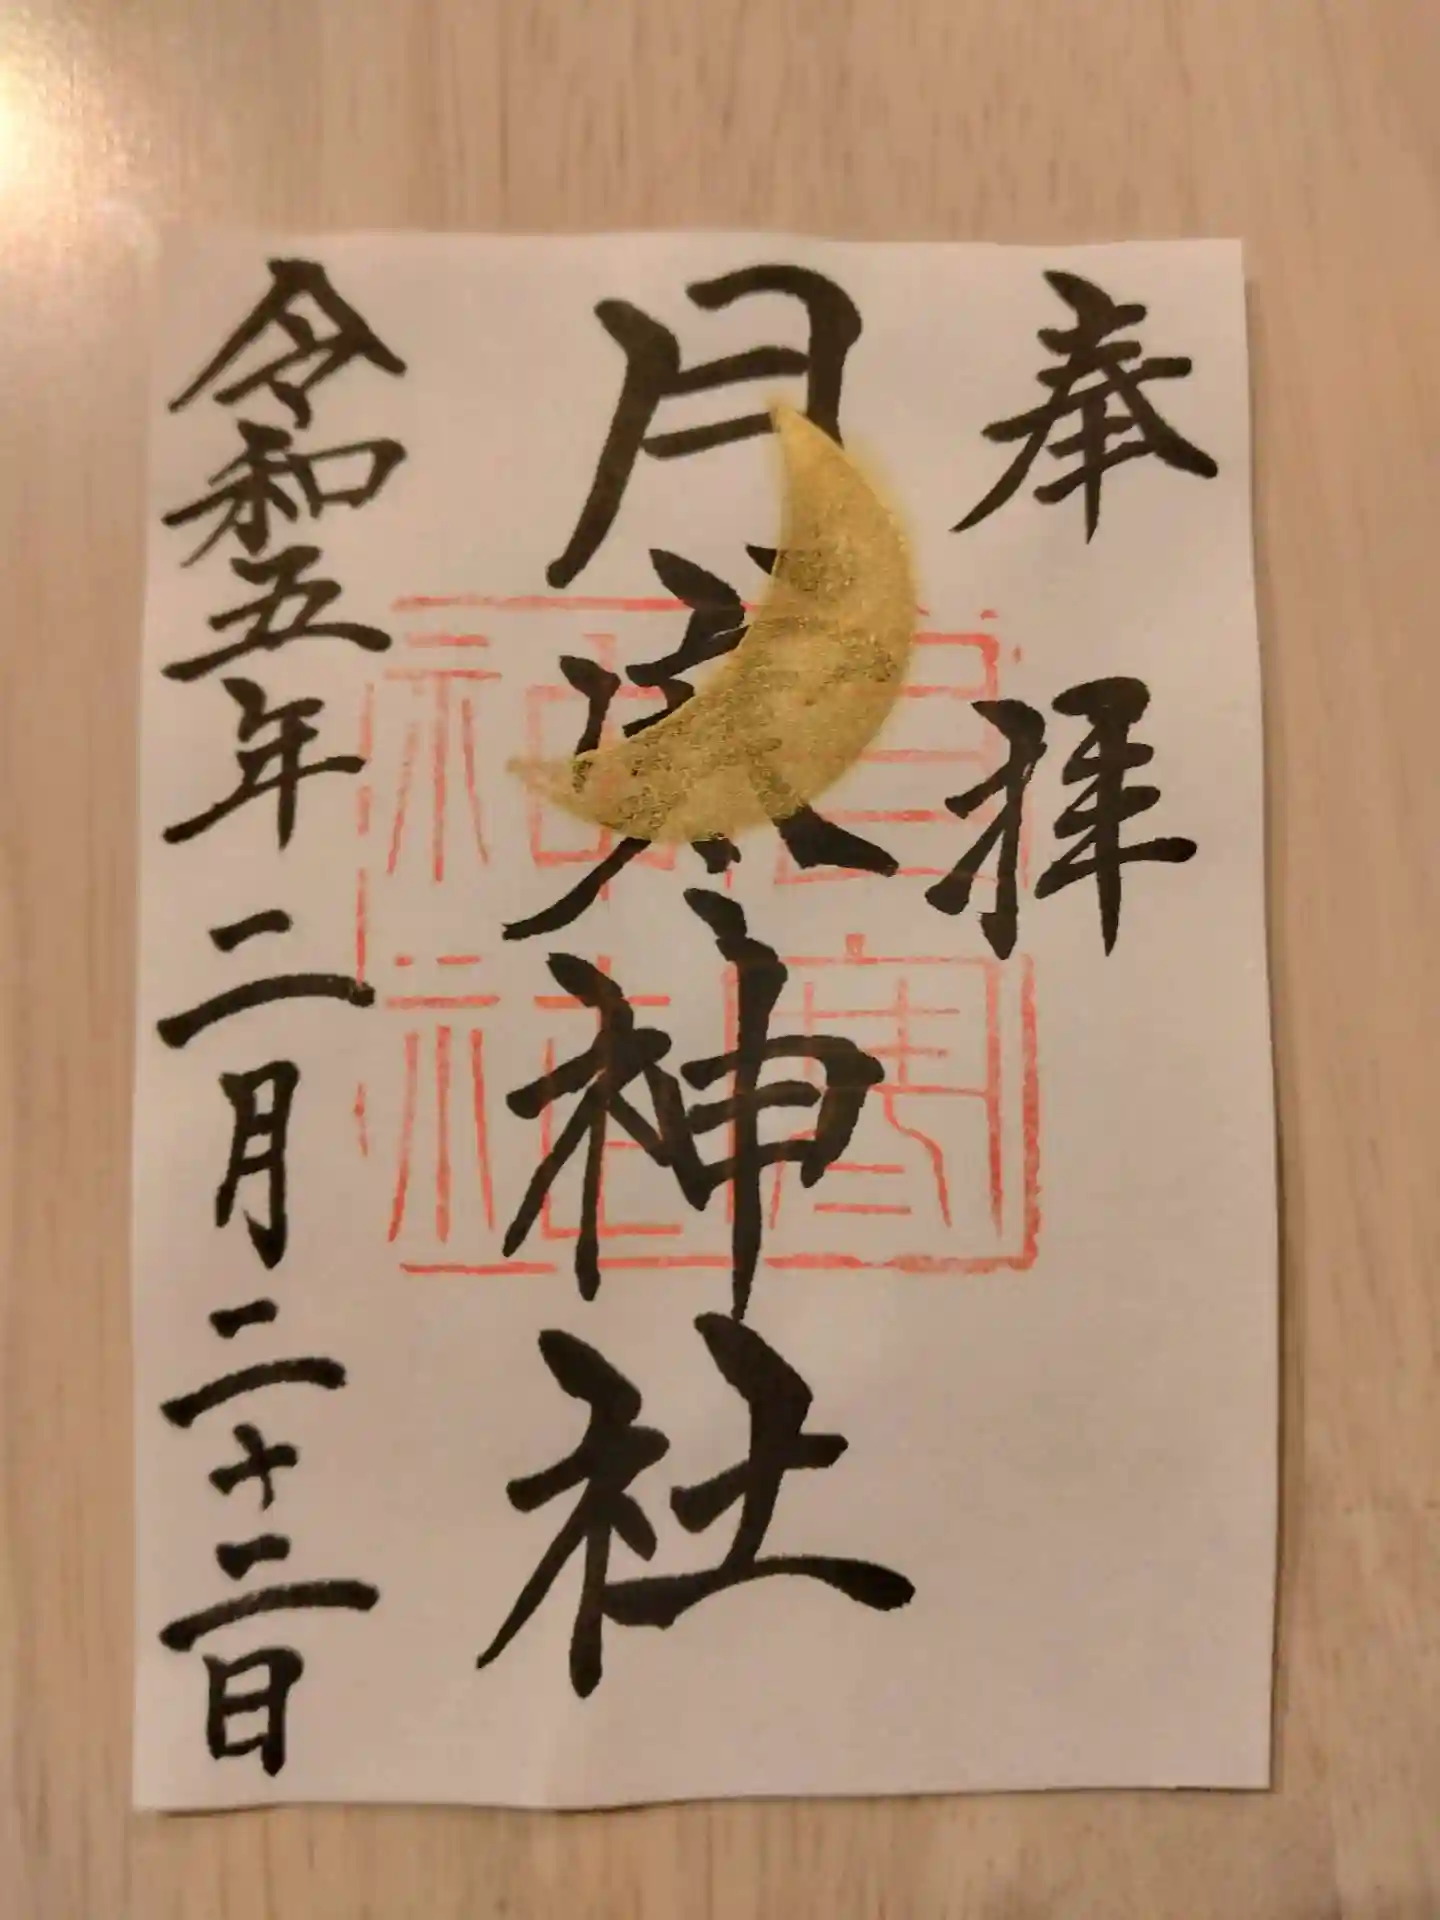 奉拝
月寒神社
令和五年二月二十二日
月寒
神社